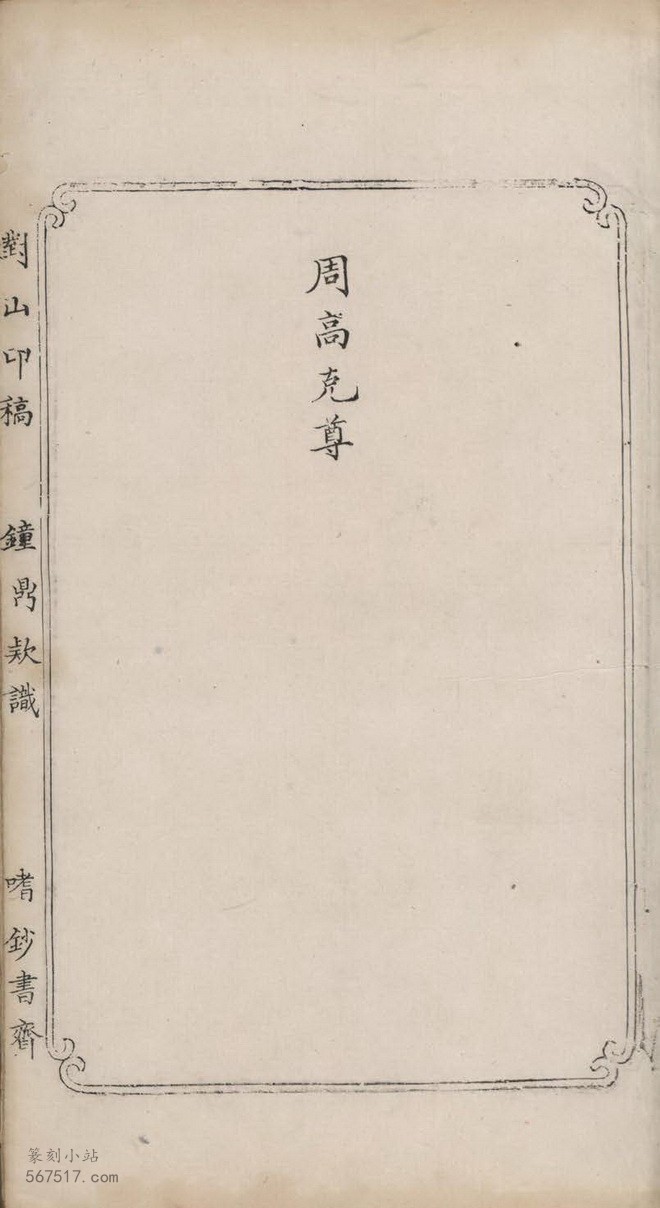 周高克尊
對山印稿 鐘鼎款識 嗜鈔書齋
篆刻小站
567517.com